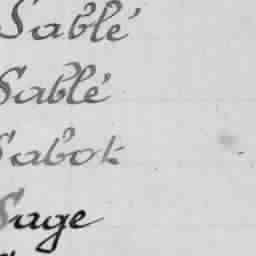 Sablé
Sablé
Sabot
Sage